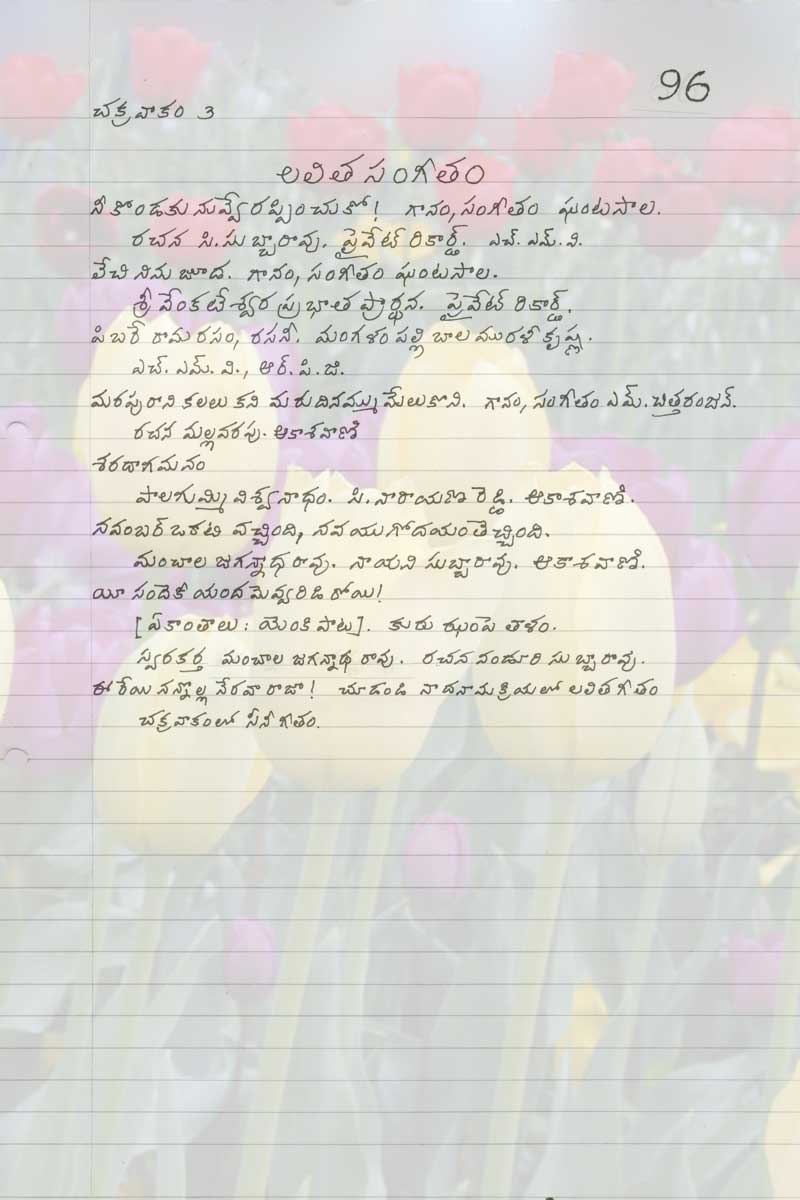 96
చక్రవాకం 3
లలిత సంగీతం
నీ కొండకు నువ్వే రప్పించుకో! గానం, సంగీతం ఘంటసాల.
రచన సి.సుబ్బారావు. ప్రైవేట్ రికార్డ్. ఎచ్. ఎమ్. వి.
లేచి నిను జూడ. గానం, సంగీతం ఘంటసాల.
శ్రీ వేంకటేశ్వర ప్రభాత ప్రార్థన. ప్రైవేట్ రికార్డ్.
పిబరే రామ రసం, రసనే. మంగళంపల్లి బాల మురళీ కృష్ణ.
ఎచ్. ఎమ్. వి., ఆర్. పి. జి.
మరపురాని కలలు కని మరుదినమ్ము మేలుకొని. గానం, సంగీతం ఎమ్. చిత్తరంజన్.
రచన మల్లవరపు. ఆకాశవాణి
శరదాగమనం
పాలగుమ్మి విశ్వనాథం. సి. నారాయణ రెడ్డి. ఆకాశవాణి.
నవంబర్ ఒకటి వచ్చింది, నవయుగోదయం తెచ్చింది.
మంచాల జగన్నాధ రావు. నాయని సుబ్బారావు. ఆకాశవాణి.
యీ సందెకీ యంద మెవ్వరిడి రోయి!
[ఏకాంతాలు : యెంకి పాట]. కురు ఝంపె తాళం.
స్వరకర్త మంచాల జగన్నాధ రావు. రచన నండూరి సుబ్బారావు.
ఈ రేయి నన్నొల్ల నేరవా రాజా! చూడండి నాదనామక్రియలో లలిత గీతం
చక్రవాకంలో సినీ గీతం.